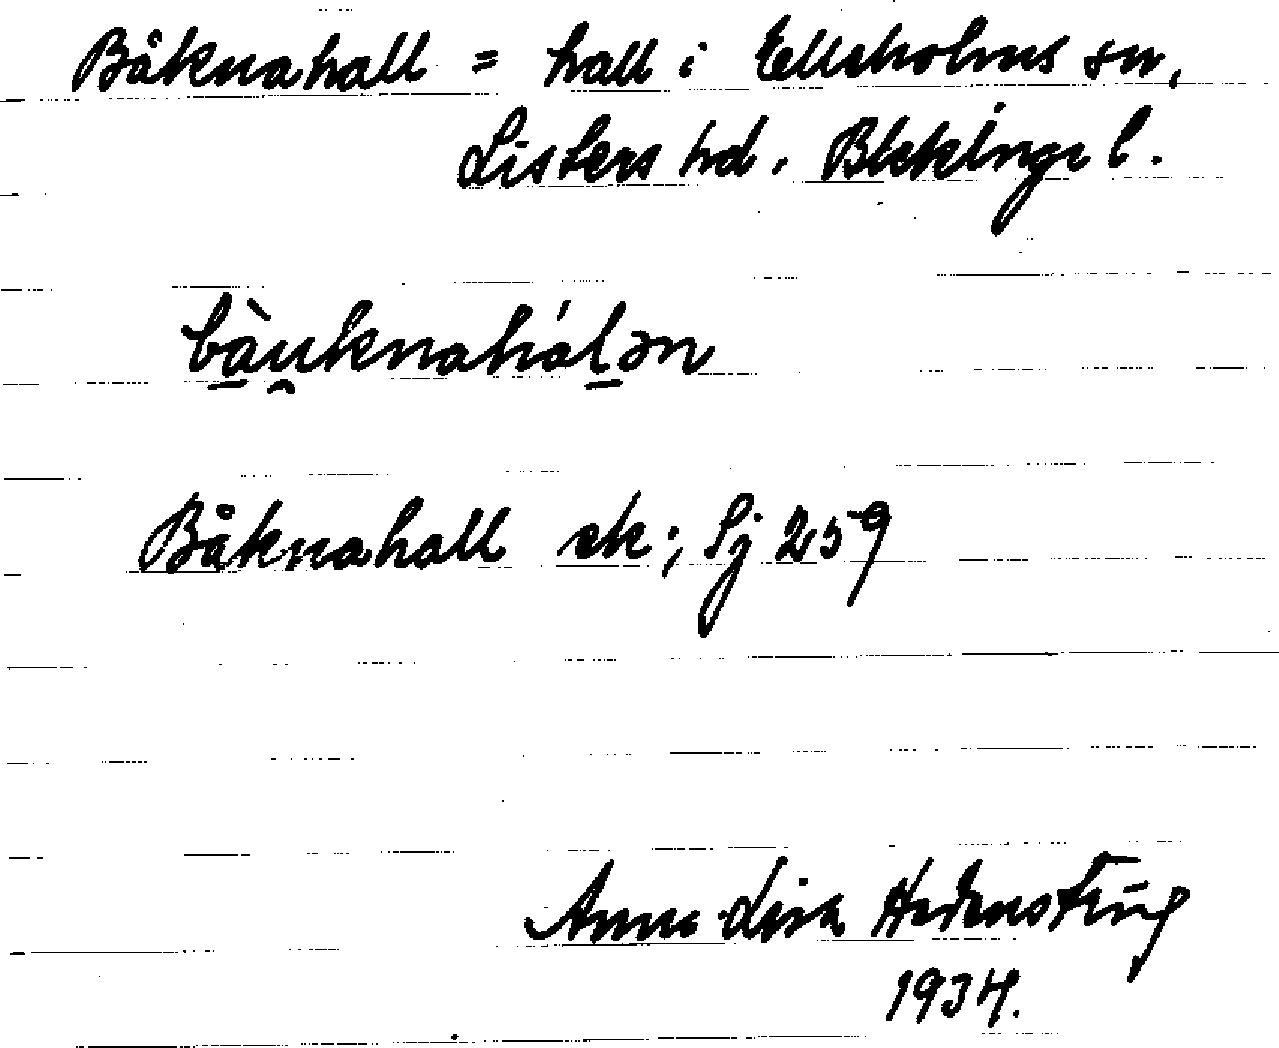 Båknahall = hall i Elleholms sn,
Listers hd, Blekinge l.
bà̱u̯knahál̠ən
Båknahall ek; Sj 259
Anna-Lisa Hedenstierna
1934.